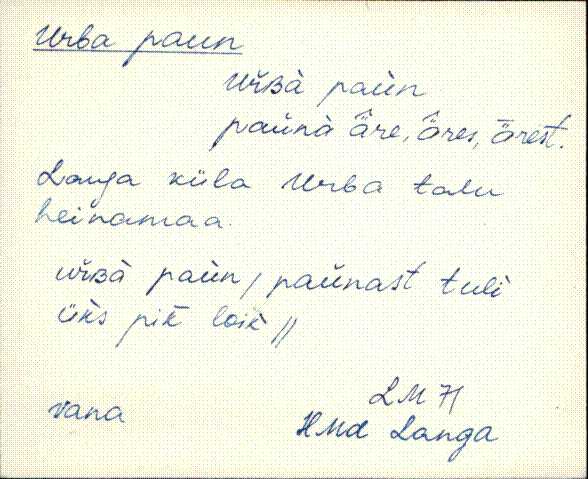 Urba paun
uřʙà paùn
paŭnà äre, äres, ärest.
Langa küla Urba talu
heinamaa.
uřʙà paùn / paŭnast tuli
üks pik loik //
LM 71
vana
HMd Langa